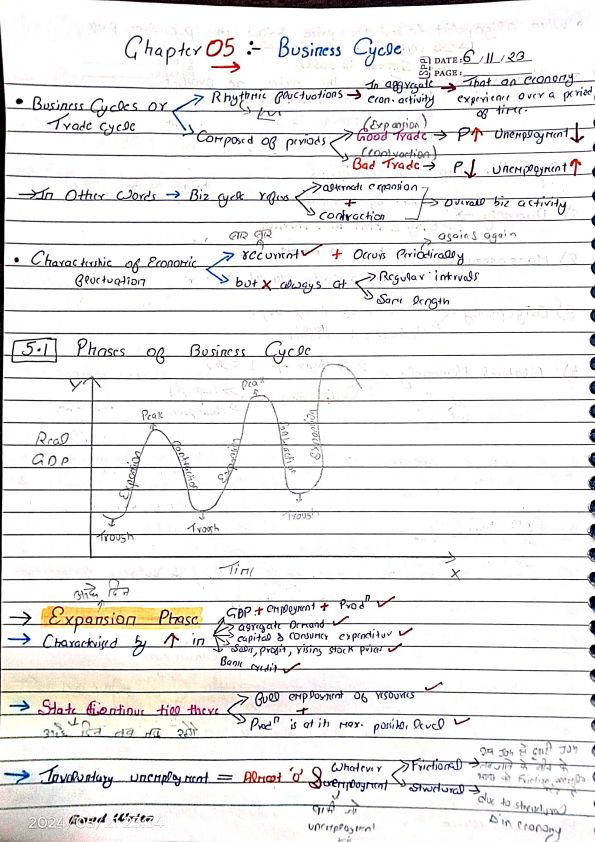 Chapter 05 :- Business Cycle
DATE: 6/11/23
PAGE:
• Business Cycles or Trade Cycle
Rhythmic fluctuations → In aggregate econ. activity → That an economy experience over a period of time.
Composed of periods
(Expansion)
Good Trade → P↑ Unemployment ↓
(Contraction)
Bad Trade → P↓ unemployment ↑
→ In Other Words → Biz cycle refers
alternate expansion
+
contraction
→ Overall biz activity
बार बार
agains again
• Characteristic of Economic fluctuation
recurrent ✓ + Occurs Periodically
but x always at
Regular intervals
Same length
5.1 Phases of Business Cycle
Y
Real GDP
Peak
Peak
Expansion
Contraction
Expansion
Contraction
Expansion
Trough
Trough
Trough
Time
X
→ Expansion Phase
→ Characterised by ↑ in
GDP + employment + Prodⁿ ✓
aggregate Demand ✓
capital & consumer expenditur ✓
Sales, profit, rising stock prices ✓
Bank credit ✓
→ State
till there
Full employment of resources ✓
+
Prodⁿ is at its max. possible level ✓
→ Involuntary unemployment = Almost '0' & Whatever unemployment
Frictional
Structural
due to structural
Δ in economy
unemployment